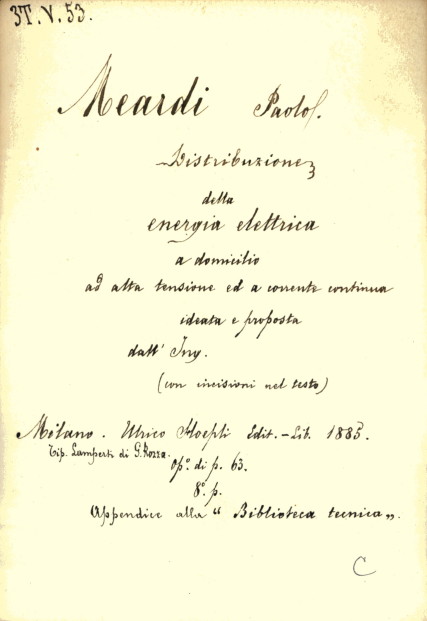 3T.V.53.
Meardi Paolo.
Distribuzione
della
energia elettrica
a domicilio
ad alta tensione ed a corrente continua
ideata e proposta
dall' Ing.
(con incisioni nel testo)
Milano. Ulrico Hoepli Edit.-Lib. 1885.
Tip. Lamperti di G. Rozza.
op.º di p. 63.
8º. p.
Appendice alla "Biblioteca tecnica".
C